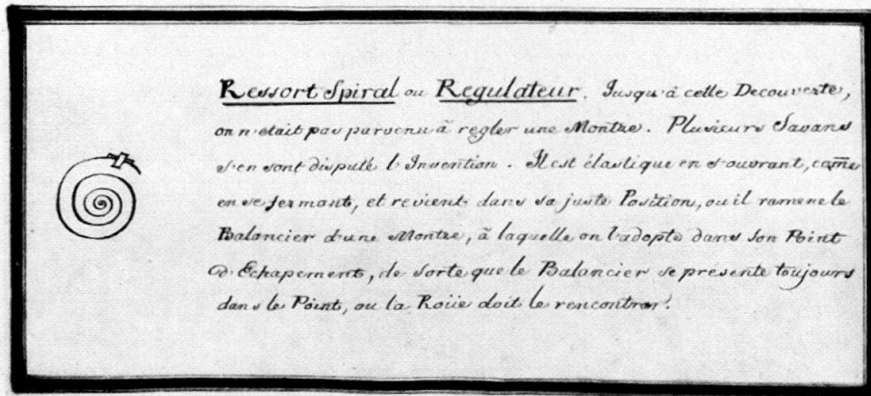 Ressort Spiral ou Regulateur. Jusqu'à cette Decouverte,
on n'était pas parvenu à regler une Montre. Plusieurs Savans
s'en sont disputé l'Invention. Il est élastique en s'ouvrant, com̄e
en se fermant, et revient dans sa juste Position, ou il ramene le
Balancier d'une Montre, à laquelle on l'adopte dans son Point
d'Echapement, de sorte que le Balancier se présente toujours
dans le Point, ou la Roüe doit le rencontrer.